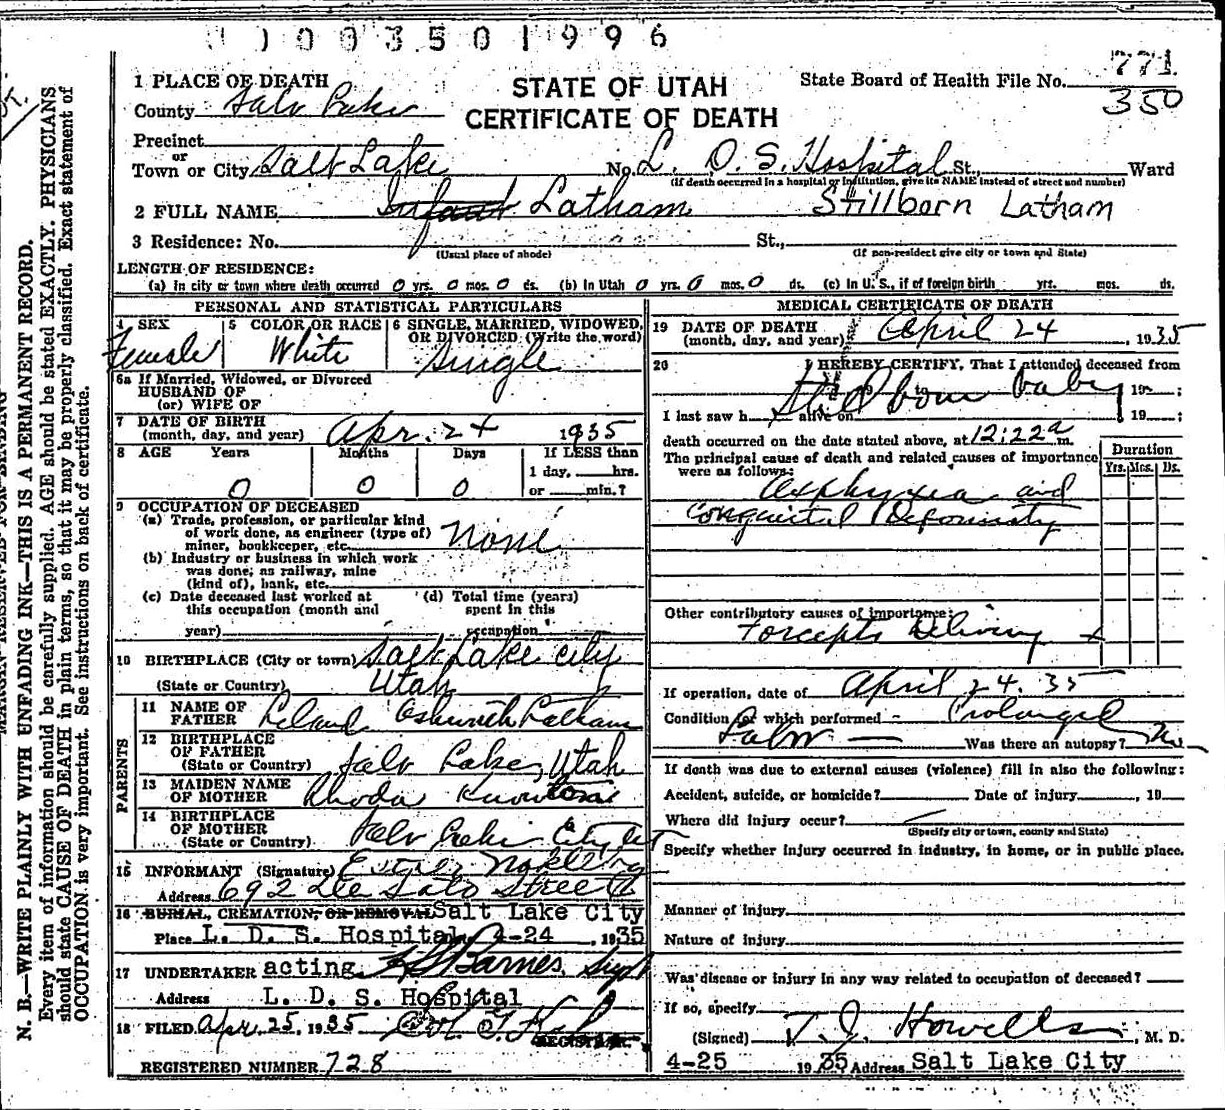 0 0 3 5 0 1 9 9 6
STATE OF UTAH
CERTIFICATE OF DEATH
State Board of Health File No. 771
350
1 PLACE OF DEATH
County Salt Lake
Precinct
or
Town or City Salt Lake No. L. D. S. Hospital St., Ward
(If death occurred in a hospital or institution, give its NAME instead of street and number)
2 FULL NAME Infant Latham Stillborn Latham
3 Residence: No. St.,
(Usual place of abode) (If non-resident give city or town and State)
LENGTH OF RESIDENCE:
(a) In city or town where death occurred 0 yrs. 0 mos. 0 ds. (b) In Utah 0 yrs. 0 mos. 0 ds. (c) In U. S., if of foreign birth yrs. mos. ds.
PERSONAL AND STATISTICAL PARTICULARS
4 SEX 5 COLOR OR RACE 6 SINGLE, MARRIED, WIDOWED, OR DIVORCED (Write the word)
Female White Single
6a If Married, Widowed, or Divorced
HUSBAND OF
(or) WIFE OF
7 DATE OF BIRTH
(month, day, and year) Apr. 24 1935
8 AGE Years Months Days If LESS than
1 day, hrs.
0 0 0 or min.?
9 OCCUPATION OF DECEASED
(a) Trade, profession, or particular kind
of work done, as engineer (type of)
miner, bookkeeper, etc. None
(b) Industry or business in which work
was done; as railway, mine
(kind of), bank, etc.
(c) Date deceased last worked at (d) Total time (years)
this occupation (month and spent in this
year) occupation
10 BIRTHPLACE (City or town) Salt Lake City
(State or Country) Utah
PARENTS
11 NAME OF
FATHER Leland Ashworth Latham
12 BIRTHPLACE
OF FATHER
(State or Country) Salt Lake, Utah
13 MAIDEN NAME
OF MOTHER Rhoda
14 BIRTHPLACE
OF MOTHER
(State or Country) Salt Lake City Ut
15 INFORMANT (Signature) Esther
Address 692 De Soto Street
16 BURIAL, CREMATION, OR REMOVAL Salt Lake City
Place L. D. S. Hospital 4-24, 1935
17 UNDERTAKER acting Barnes, Supt
Address L. D. S. Hospital
18 FILED Apr. 25, 1935
REGISTRAR.
REGISTERED NUMBER 728
MEDICAL CERTIFICATE OF DEATH
19 DATE OF DEATH
(month, day, and year) April 24, 1935
20 I HEREBY CERTIFY, That I attended deceased from
Stillborn baby 19 ;
I last saw h alive on 19 ;
death occurred on the date stated above, at 12:22 a m.
The principal cause of death and related causes of importance
were as follows:
Duration
Yrs. Mos. Ds.
Asphyxia and
Congenital Deformity
Other contributory causes of importance:
Forceps Delivery
If operation, date of April 24. 35
Condition for which performed - Prolonged
Labor — Was there an autopsy? No
If death was due to external causes (violence) fill in also the following:
Accident, suicide, or homicide? Date of injury , 19
Where did injury occur?
(Specify city or town, county and State)
Specify whether injury occurred in industry, in home, or in public place.
Manner of injury
Nature of injury
Was disease or injury in any way related to occupation of deceased?
If so, specify
(Signed) T. J. Howells, M. D.
4-25 1935 Address Salt Lake City
N. B.—WRITE PLAINLY WITH UNFADING INK—THIS IS A PERMANENT RECORD.
Every item of information should be carefully supplied. AGE should be stated EXACTLY. PHYSICIANS
should state CAUSE OF DEATH in plain terms, so that it may be properly classified. Exact statement of
OCCUPATION is very important. See instructions on back of certificate.